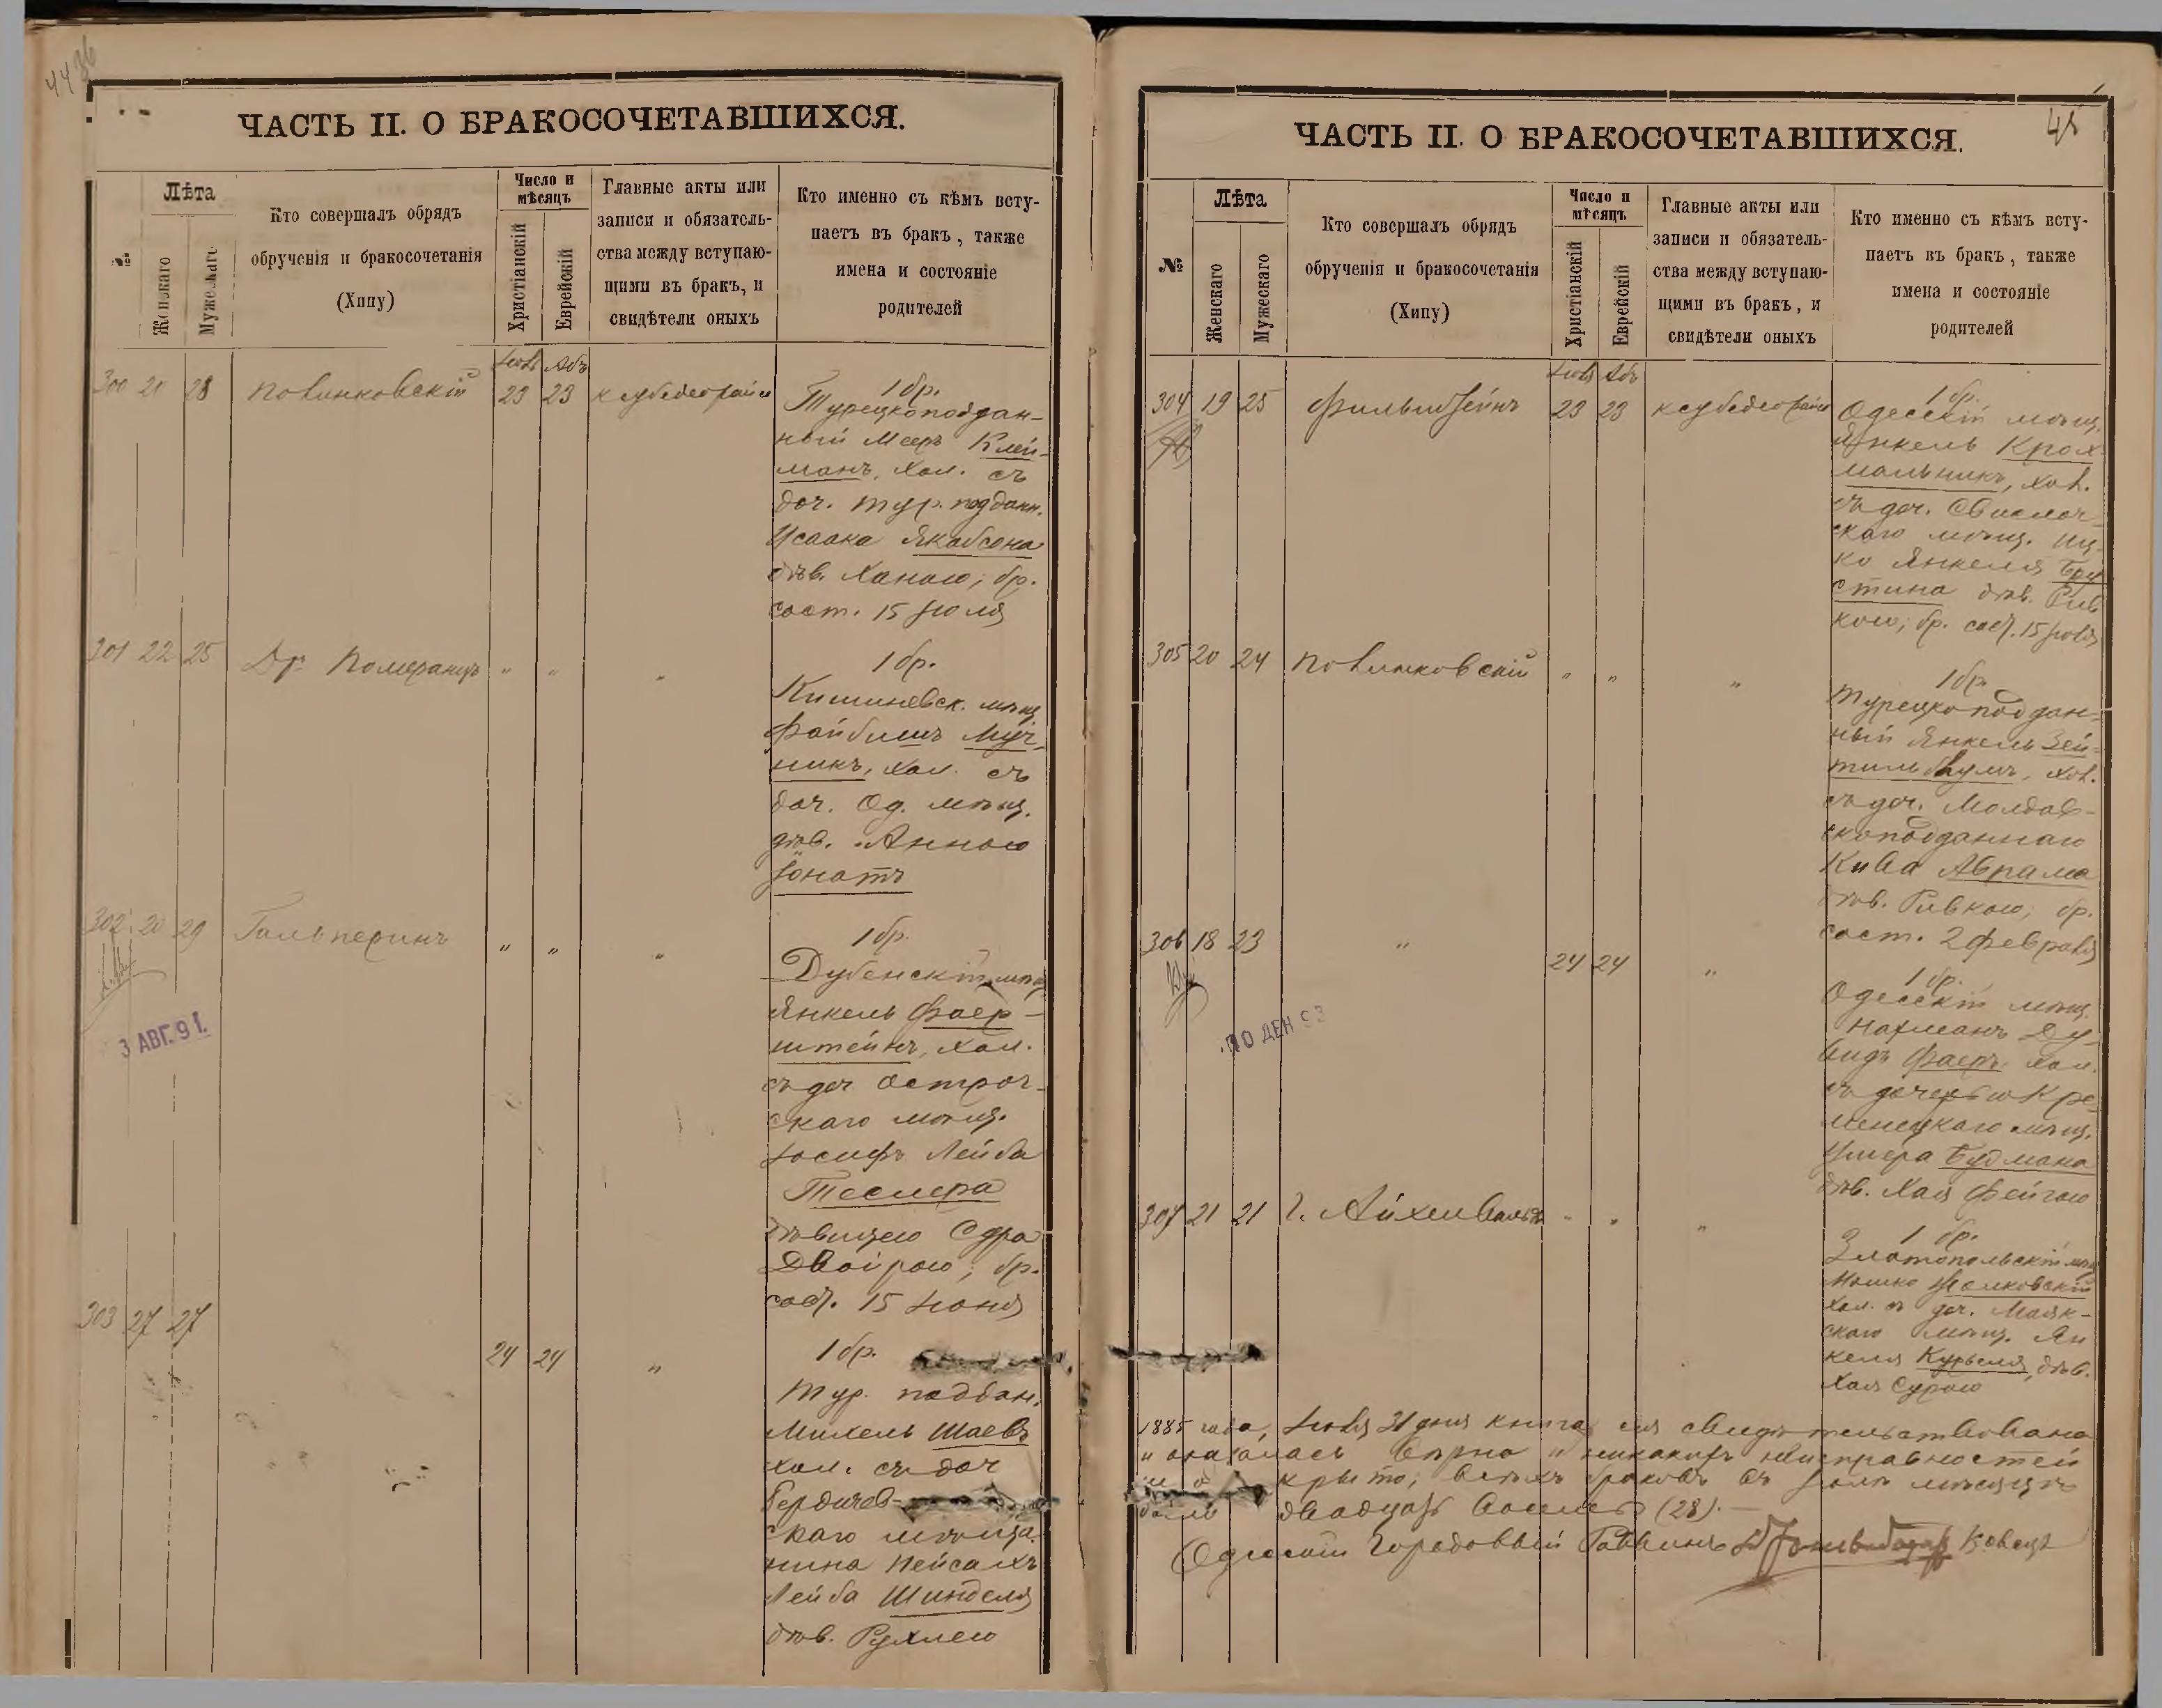 4436
ЧАСТЬ II. О БРАКОСОЧЕТАВШИХСЯ.
№
Лѣта
Женскаго
Мужескаго
Кто совершалъ обрядъ
обрученія и бракосочетанія
(Хипу)
Число и
мѣсяцъ
Христіанскій
Еврейскій
Главные акты или
записи и обязатель-
ства между вступаю-
щими въ бракъ, и
свидѣтели оныхъ
Кто именно съ кѣмъ всту-
паетъ въ бракъ, также
имена и состояніе
родителей
Іюль Абъ
300 20 28 Полинковскій 23 23
1 бр.
Турецкоподдан-
ный Мееръ Клей-
манъ, хол. съ
доч. тур. поддан.
Исаака Якабсона
дѣв. Ханою; бр.
сост. 15 Іюля
301 22 25 Др. Померанцъ " " "
1 бр.
Кишиневск. мѣщ.
Файбишъ Муч-
никъ, хол. съ
доч. Од. мѣщ.
дѣв. Анною
Іонатъ
302 20 29 Гальперинъ " " "
3 АВГ. 91.
1 бр.
Дубенскій мѣщ.
Янкель Фаер-
штейнъ, хол.
съ доч Острог-
скаго мѣщ.
Іосифъ Лейба
Теслера
дѣвицею Сдра
Двойрою; бр.
сост. 15 Іюня
303 27 27 24 24 "
1 бр.
Тур. поддан.
Михель Шаевъ
хол. съ доч
Бердичев-
скаго мѣща-
нина Пейсахъ
Лейба Шинделя
дѣв. Рухлею
45
ЧАСТЬ II. О БРАКОСОЧЕТАВШИХСЯ.
№
Лѣта
Женскаго
Мужескаго
Кто совершалъ обрядъ
обрученія и бракосочетанія
(Хипу)
Число и
мѣсяцъ
Христіанскій
Еврейскій
Главные акты или
записи и обязатель-
ства между вступаю-
щими въ бракъ, и
свидѣтели оныхъ
Кто именно съ кѣмъ всту-
паетъ въ бракъ, также
имена и состояніе
родителей
Іюль Абъ
304 19 25 Фильштейнъ 23 23
1 бр.
Одесскій мѣщ.
Янкель Крох-
мальникъ, хол.
съ доч. Свислоч-
скаго мѣщ. Иц-
ко Янкеля Бру
стина дѣв. Рив
кою; бр. сост. 15 Іюля
305 20 24 Полинковскій " " "
1 бр.
Турецкоподдан-
ный Янкель Зей-
тильбаумъ, хол.
съ доч. Молдав-
скоподданнаго
Кива Аврама
дѣв. Ривкою; бр.
сост. 2 Февраля
306 18 23 " 24 24 "
10 ДЕН 93
1 бр.
Одесскій мѣщ.
Нахманъ Ду-
видъ Фаеръ хол.
съ дочерью Кре-
менецкаго мѣщ.
Ушера Будмана
дѣв. Хая Фейгою
307 21 21 Г. Айхенвальдъ " " "
1 бр.
Златопольскій мѣщ
Мошко
хол. съ доч. Маяк-
скаго мѣщ. Ян
келя Курбеля, дѣв.
Хая Сурою
1885 года, Іюля 31 дня книга сія свидѣтельствована
и оказалась вѣрно и никакихъ неисправностей
не крыто; всѣхъ браковъ въ Іюлѣ мѣсяцѣ
было двадцать восемь (28).
Одесскій Городовый Раввинъ